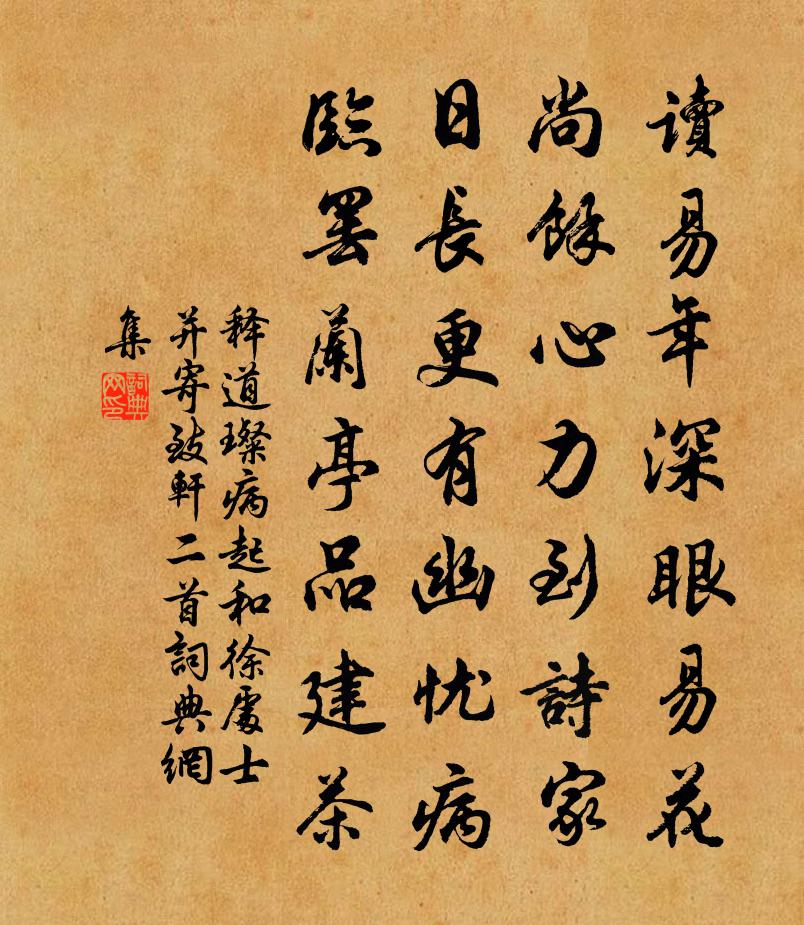 讀易年深眼易花
尚餘心力到詩家
日長更有幽忧病
臨罢蘭亭品建茶
释道璨病起和徐處士
并寄致軒二首詞典網
集
詞典
网印